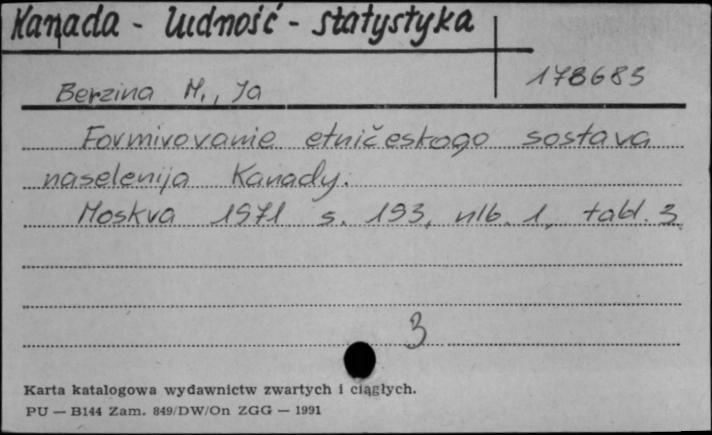 Kanada - ludność - statystyka
Berzina M., Ja
178685
Formirovanie etničeskogo sostava
naselenija Kanady.
Moskva 1971 s. 193, nlb. 1, tabl. 3
3
Karta katalogowa wydawnictw zwartych i ciągłych.
PU — B144 Zam. 849/DW/On ZGG — 1991